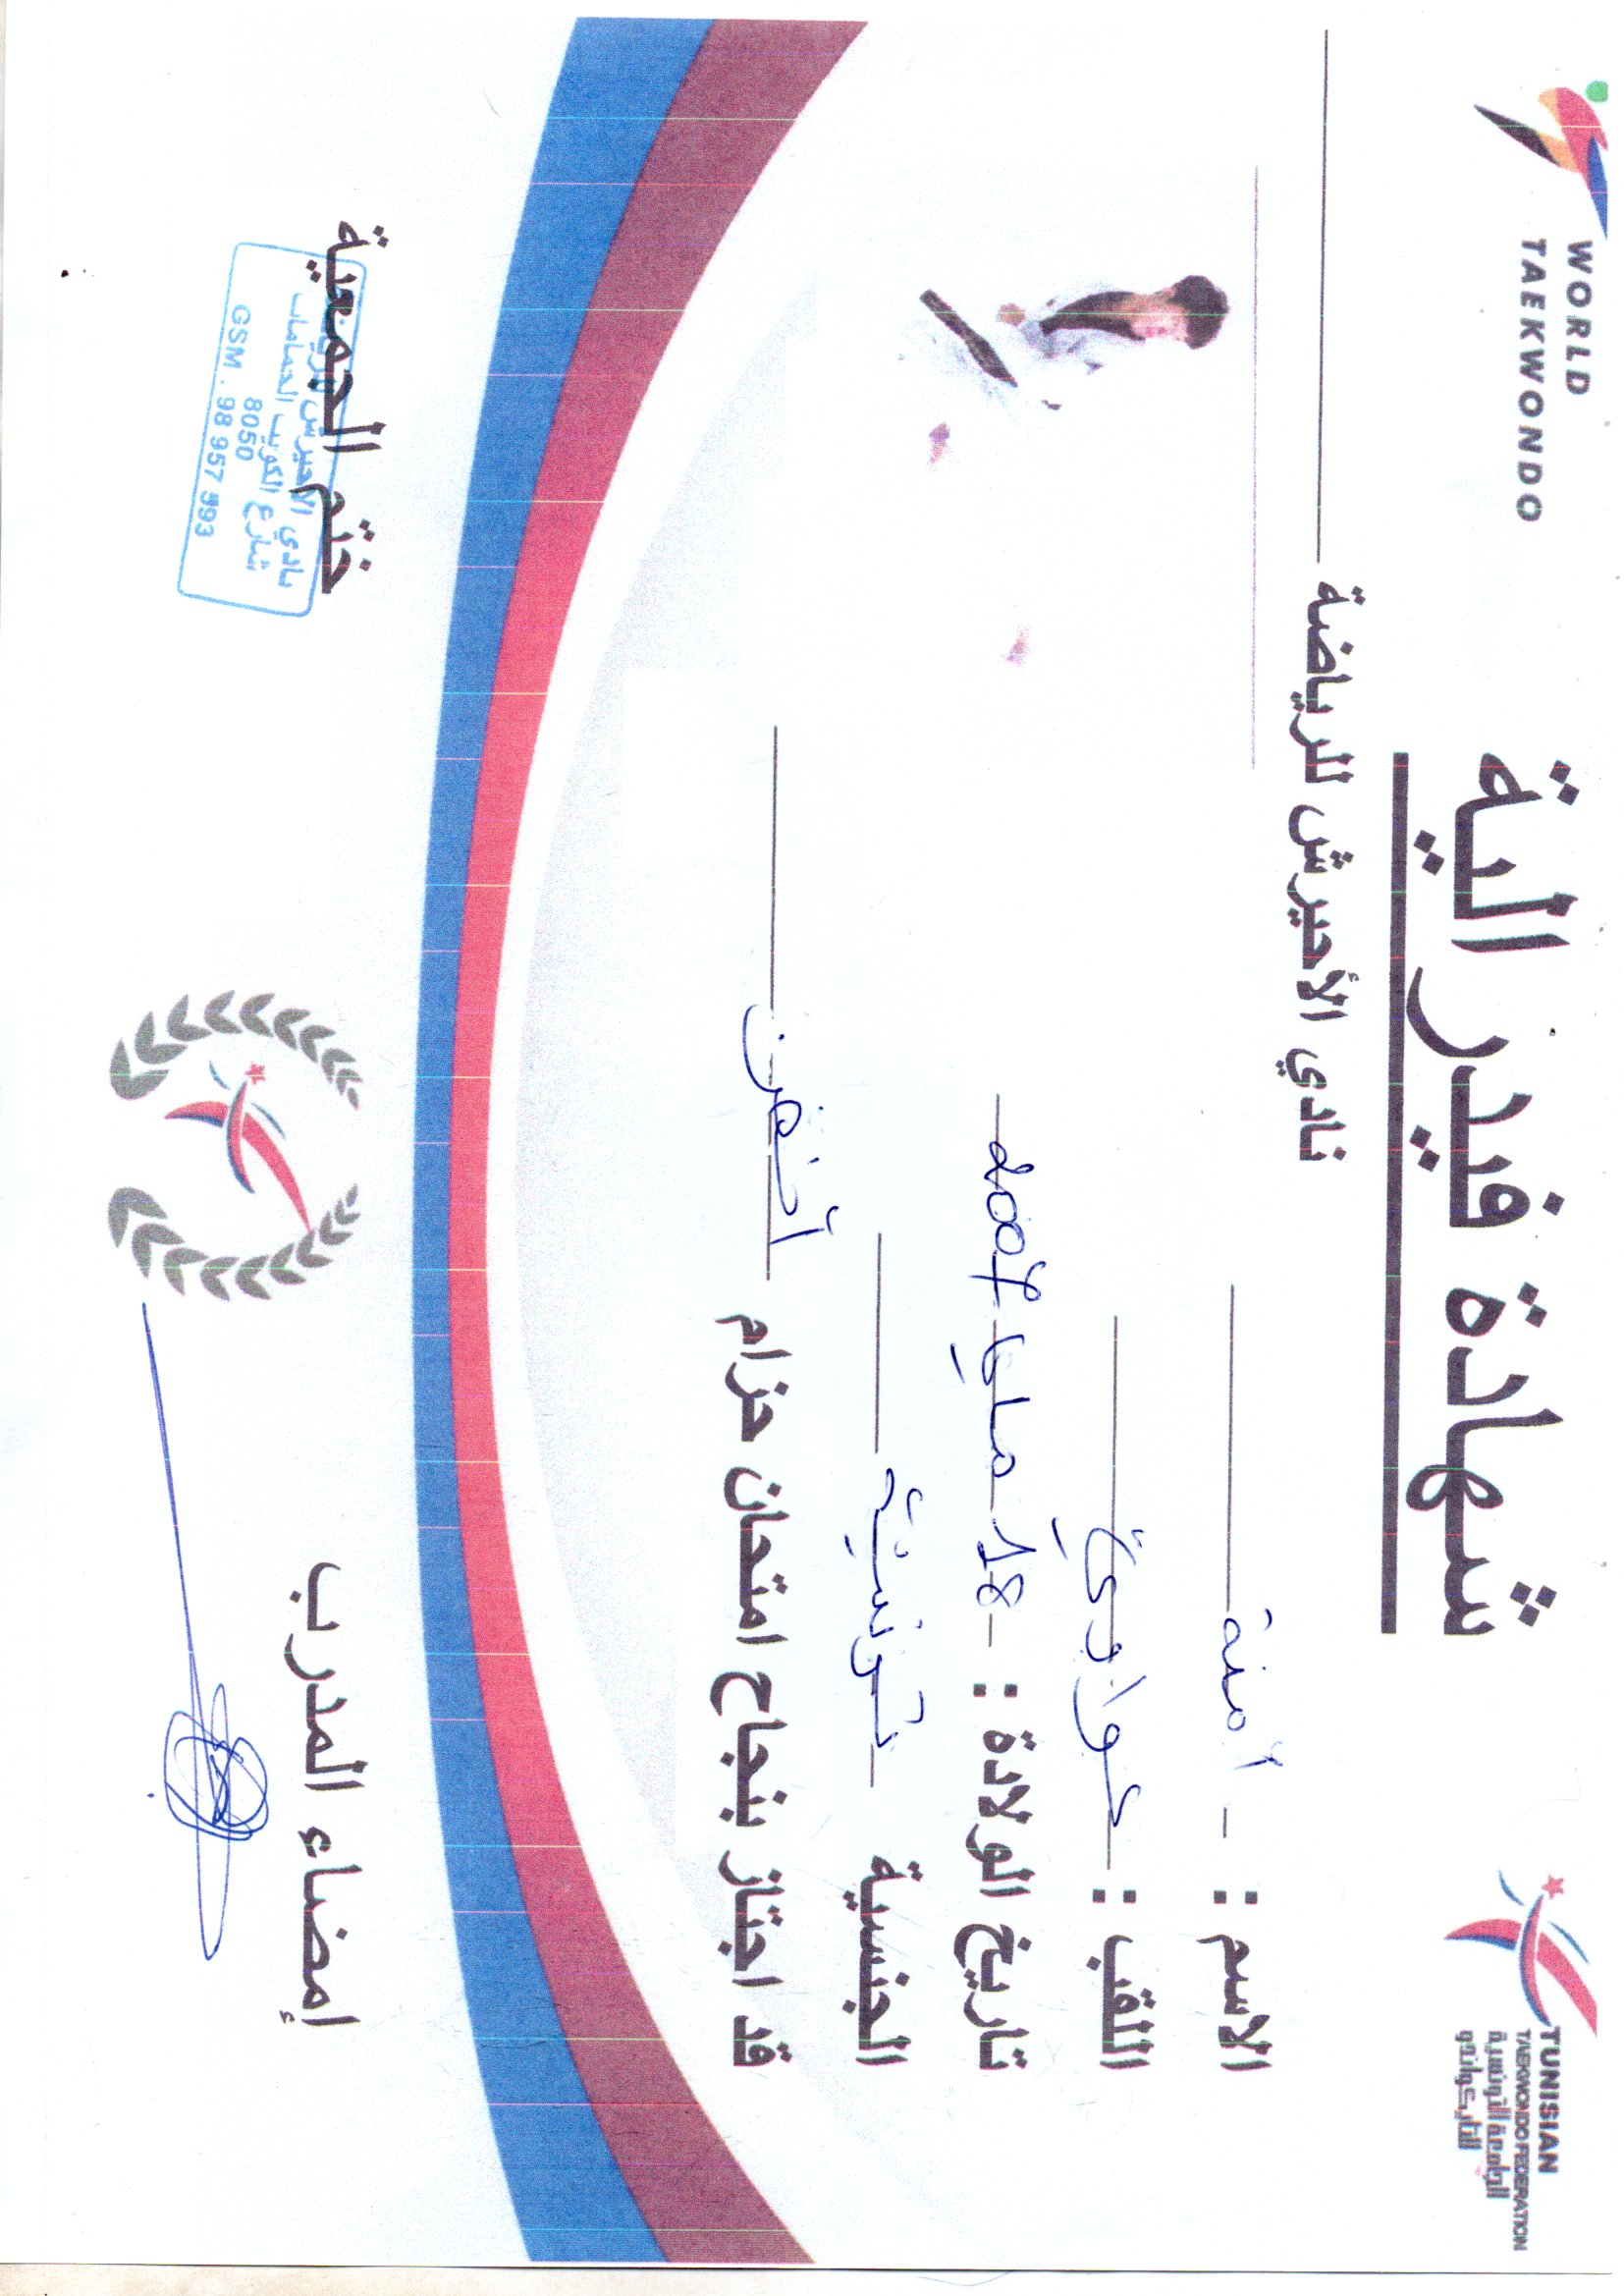 WORLD
TAEKWONDO
TUNISIAN
TAEKWONDO FEDERATION
الجامعة التونسية
للتايكواندو
شهادة فيدرالية
نادي الأحيرش للرياضة
الاسم : آمنة
اللقب :
تاريخ الولادة : 18 ماي 2007
الجنسية تونسية
قد اجتاز بنجاح امتحان حزام أخضر
إمضاء المدرب
ختم الجمعية
نادي الأحيرش للرياضة
شارع الكويت الحمامات
8050
GSM . 98 957 993